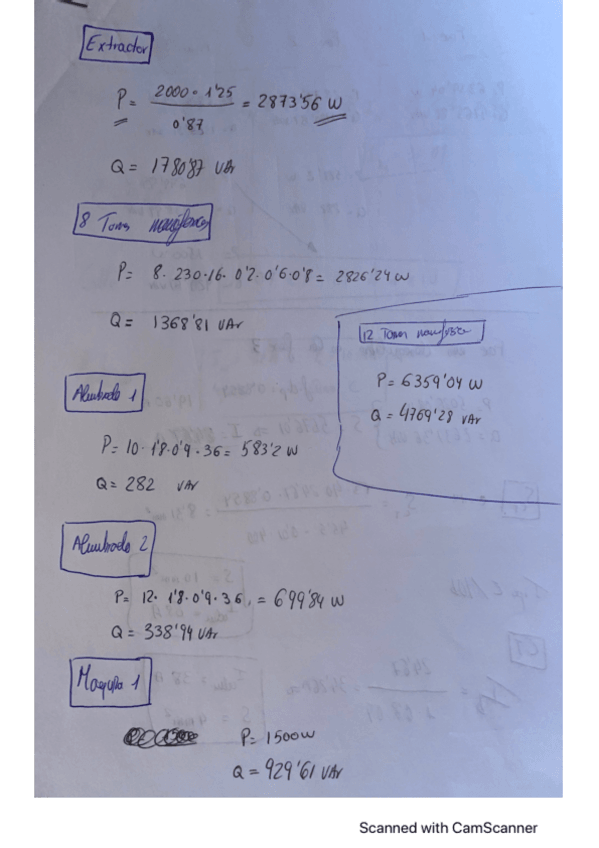 Extractor
P = 2000 · 1'25 / 0'87 = 2873'56 W
Q = 1780'87 VAr
8 Tomas monofásicas
P = 8 · 230 · 16 · 0'2 · 0'6 · 0'8 = 2826'24 W
Q = 1368'81 VAr
12 Tomas monofásicas
P = 6359'04 W
Q = 4769'28 VAr
Alumbrado 1
P = 10 · 1'8 · 0'9 · 36 = 583'2 W
Q = 282 VAr
Alumbrado 2
P = 12 · 1'8 · 0'9 · 36 = 699'84 W
Q = 338'94 VAr
Maquina 1
P = 1500 W
Q = 929'61 VAr
Scanned with CamScanner